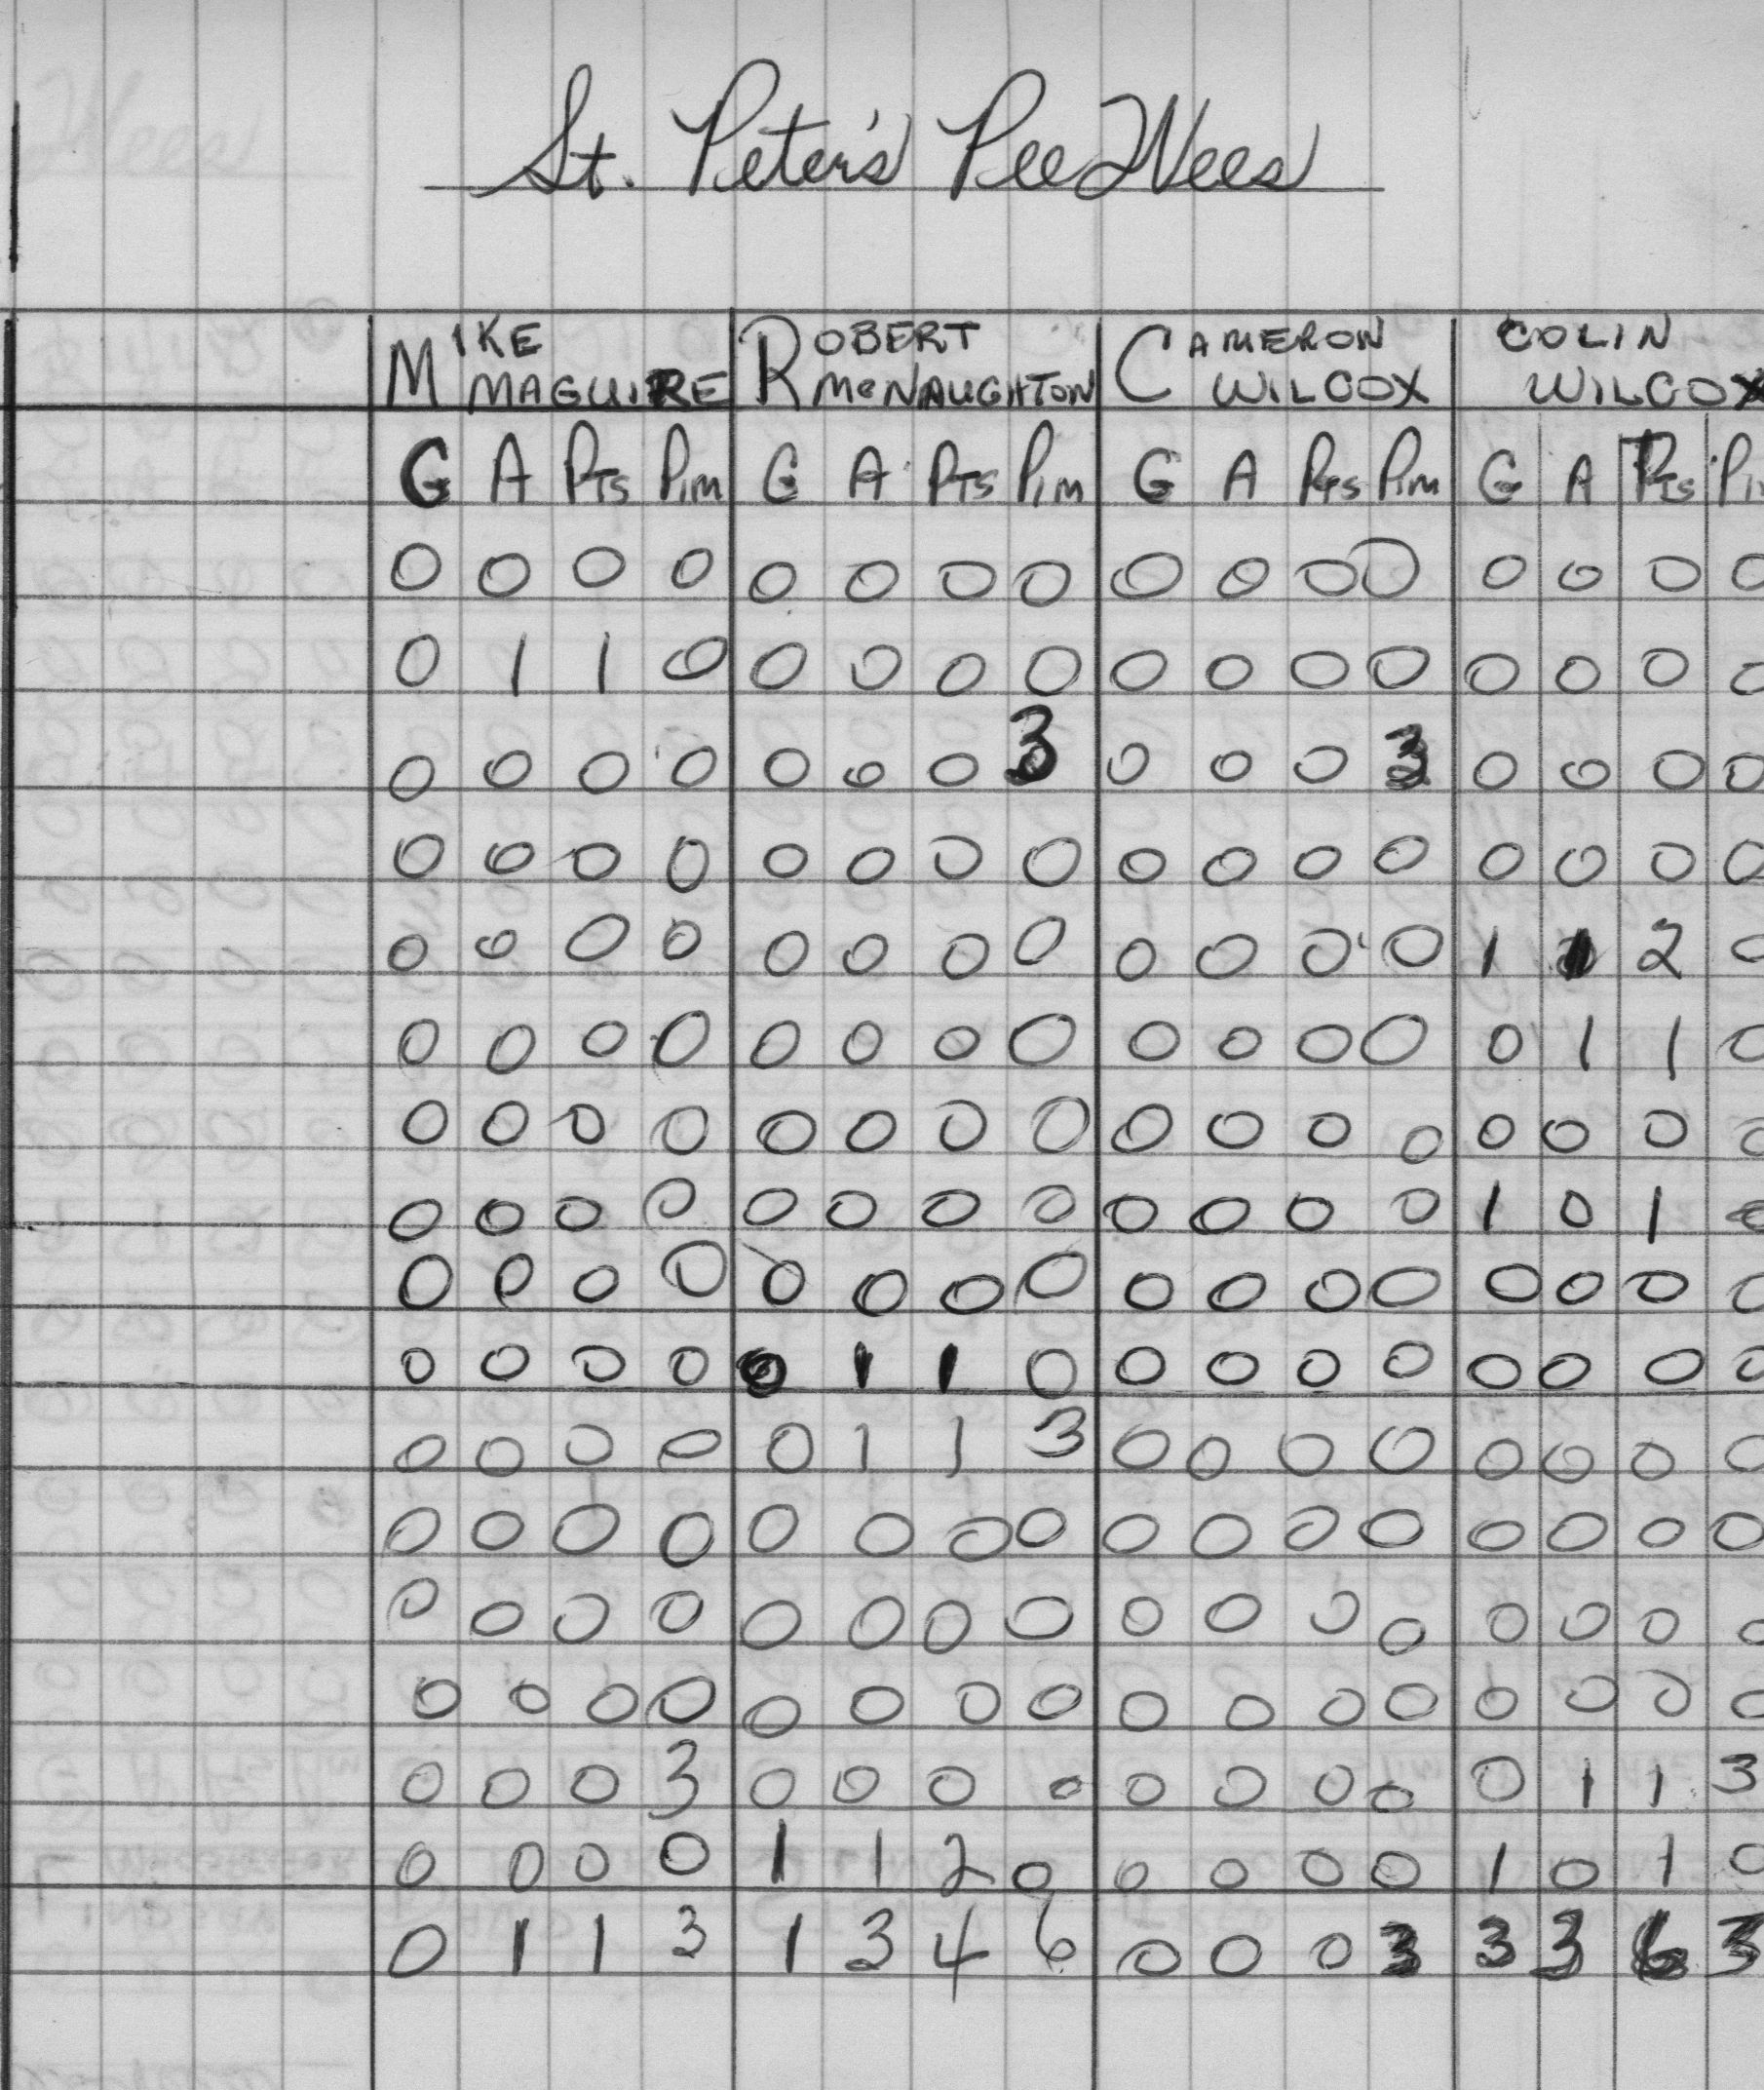 St. Peter's PeeWees
MIKE ROBERT CAMERON COLIN
MAGUIRE McNAUGHTON WILCOX WILCOX
G A PTS PIM G A PTS PIM G A PTS PIM G A PTS PI
0 0 0 0 0 0 0 0 0 0 0 0 0 0 0 0
0 1 1 0 0 0 0 0 0 0 0 0 0 0 0 0
0 0 0 0 0 0 0 3 0 0 0 3 0 0 0 0
0 0 0 0 0 0 0 0 0 0 0 0 0 0 0 0
0 0 0 0 0 0 0 0 0 0 0 0 1 1 2 0
0 0 0 0 0 0 0 0 0 0 0 0 0 1 1 0
0 0 0 0 0 0 0 0 0 0 0 0 0 0 0 0
0 0 0 0 0 0 0 0 0 0 0 0 1 0 1 0
0 0 0 0 0 0 0 0 0 0 0 0 0 0 0 0
0 0 0 0 0 1 1 0 0 0 0 0 0 0 0 0
0 0 0 0 0 1 1 3 0 0 0 0 0 0 0 0
0 0 0 0 0 0 0 0 0 0 0 0 0 0 0 0
0 0 0 0 0 0 0 0 0 0 0 0 0 0 0 0
0 0 0 0 0 0 0 0 0 0 0 0 0 0 0 0
0 0 0 3 0 0 0 0 0 0 0 0 0 1 1 3
0 0 0 0 1 1 2 0 0 0 0 0 1 0 1 0
0 1 1 3 1 3 4 6 0 0 0 3 3 3 6 3